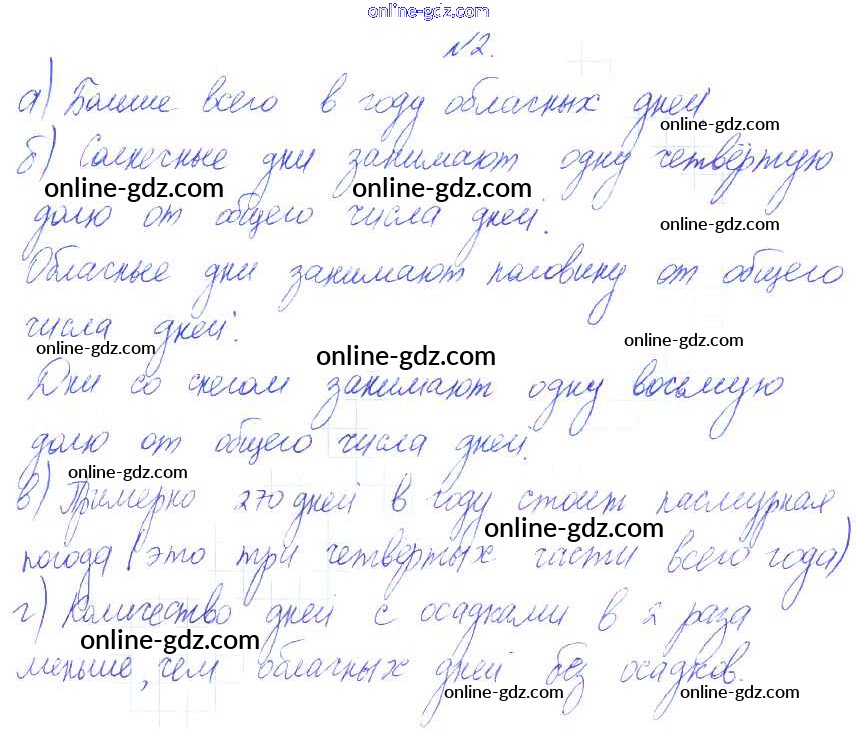 online-gdz.com
№2.
а) Больше всего в году облачных дней
online-gdz.com
б) Солнечные дни занимают одну четвёртую
online-gdz.com online-gdz.com
долю от общего числа дней.
online-gdz.com
Облачные дни занимают половину от общего
числа дней.
online-gdz.com online-gdz.com online-gdz.com
Дни со снегом занимают одну восьмую
долю от общего числа дней.
online-gdz.com
в) Примерно 270 дней в году стоит пасмурная
online-gdz.com
погода (это три четвертых части всего года)
г) Количество дней с осадками в 2 раза
online-gdz.com
меньше, чем облачных дней без осадков.
online-gdz.com online-gdz.com